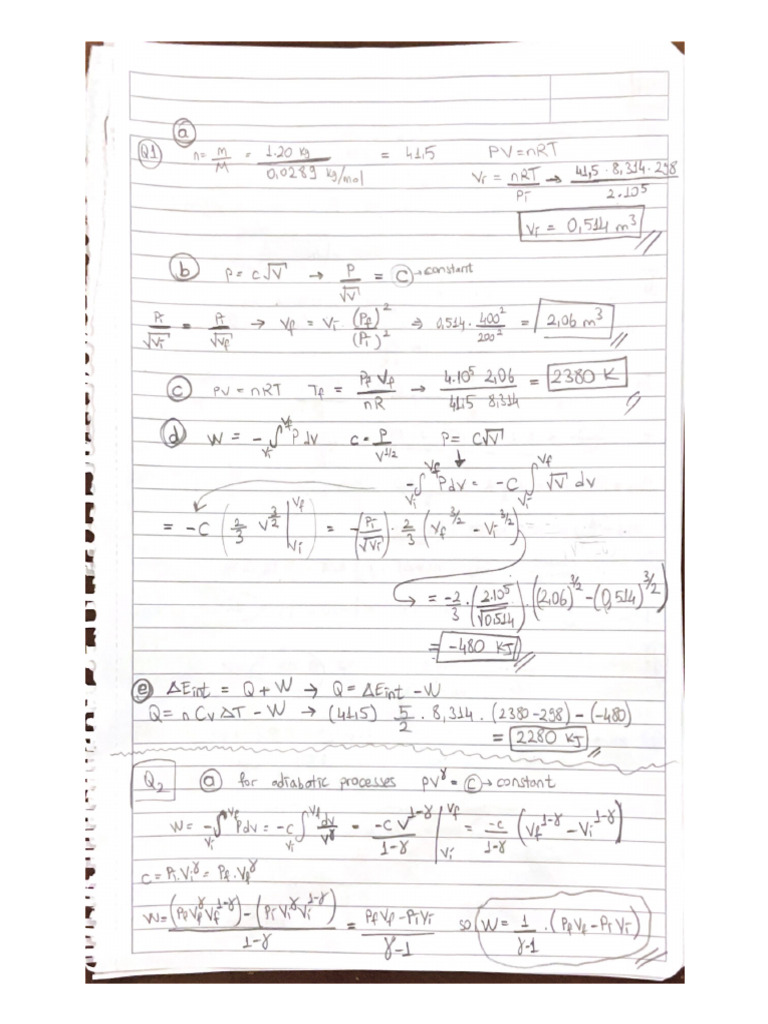 ⓐ
Q1 n = m/M = 1.20 kg / 0,0289 kg/mol = 41,5 PV = nRT
Vi = nRT/Pi → 41,5 · 8,314 · 298 / 2·10⁵
Vi = 0,514 m³
ⓑ P = c√V → P/√V = ⓒ → constant
Pi/√Vi = Pi/√Vf → Vf = Vi · (Pf)²/(Pi)² ⇒ 0,514 · 400²/200² = 2,06 m³
ⓒ PV = nRT Tf = Pf Vf / nR → 4·10⁵ 2,06 / 41,5 8,314 = 2380 K
ⓓ W = -∫_Vi^Vf P dv c = P/V^1/2 P = C√V
-∫_Vi^Vf P dv = -C ∫_Vi^Vf √V dv
= -C (2/3 V^3/2 |_Vi^Vf) = -(Pi/√Vi) · 2/3 (Vf^3/2 - Vi^3/2)
= -2/3 · (2·10⁵/√0,514) · (2,06)^3/2 - (0,514)^3/2)
= -480 KJ
ⓔ ΔEint = Q + W → Q = ΔEint - W
Q = n Cv ΔT - W → (41,5) 5/2 · 8,314 · (2380 - 298) - (-480)
= 2280 KJ
Q2 ⓐ for adiabatic processes PV^γ = ⓒ → constant
W = -∫_Vi^Vf P dv = -C ∫_Vi^Vf dv/V^γ = -C V^1-γ / 1-γ |_Vi^Vf = -C/1-γ (Vf^1-γ - Vi^1-γ)
C = Pi Vi^γ = Pf · Vf^γ
W = (Pf Vf^γ Vf^1-γ) - (Pi Vi^γ Vi^1-γ) / 1-γ = Pf Vf - Pi Vi / γ-1 so W = 1/γ-1 · (Pf Vf - Pi Vi)